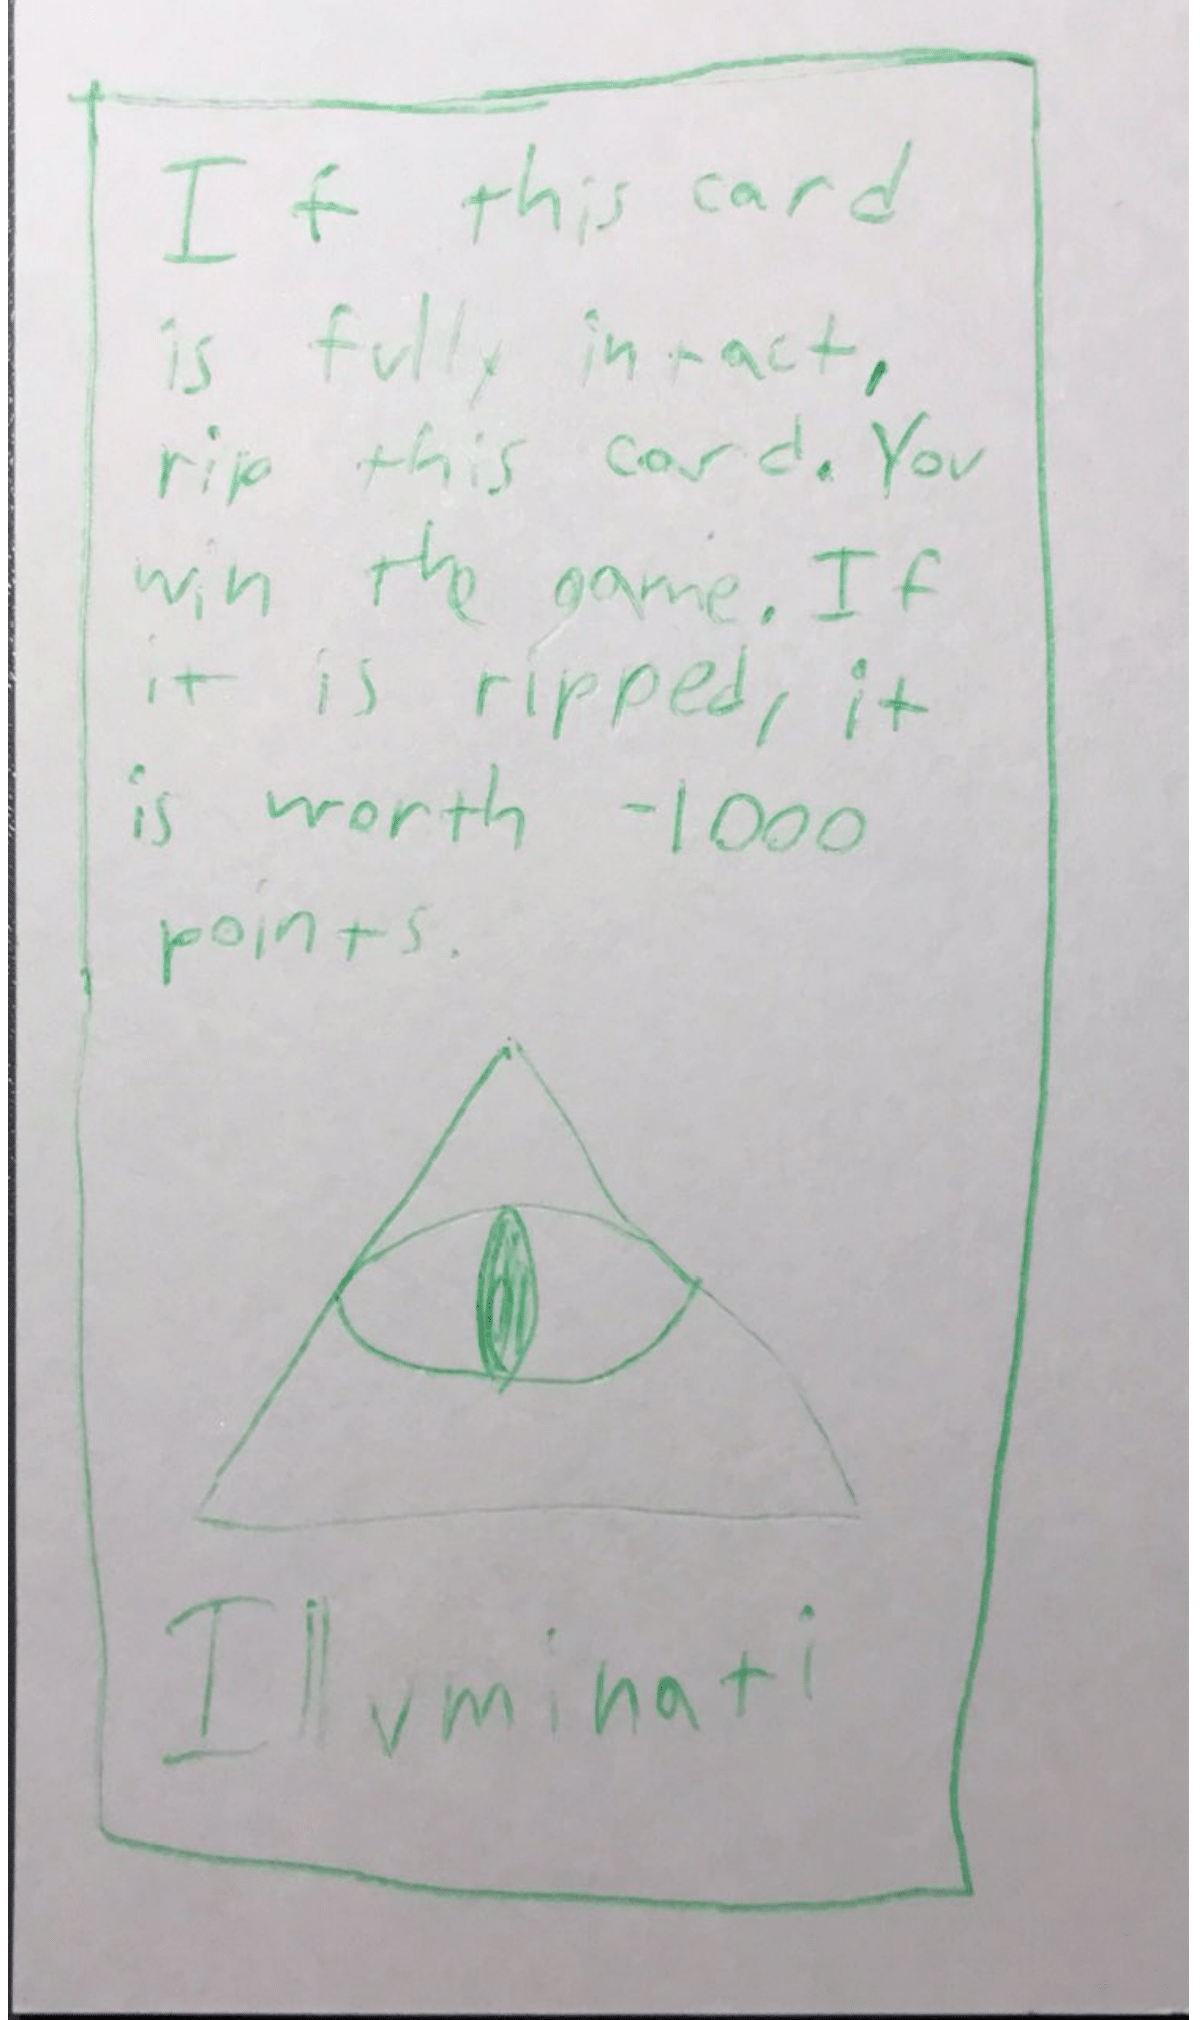 If this card
is fully intact,
rip this card. You
win the game. If
it is ripped, it
is worth -1000
points.
Illuminati